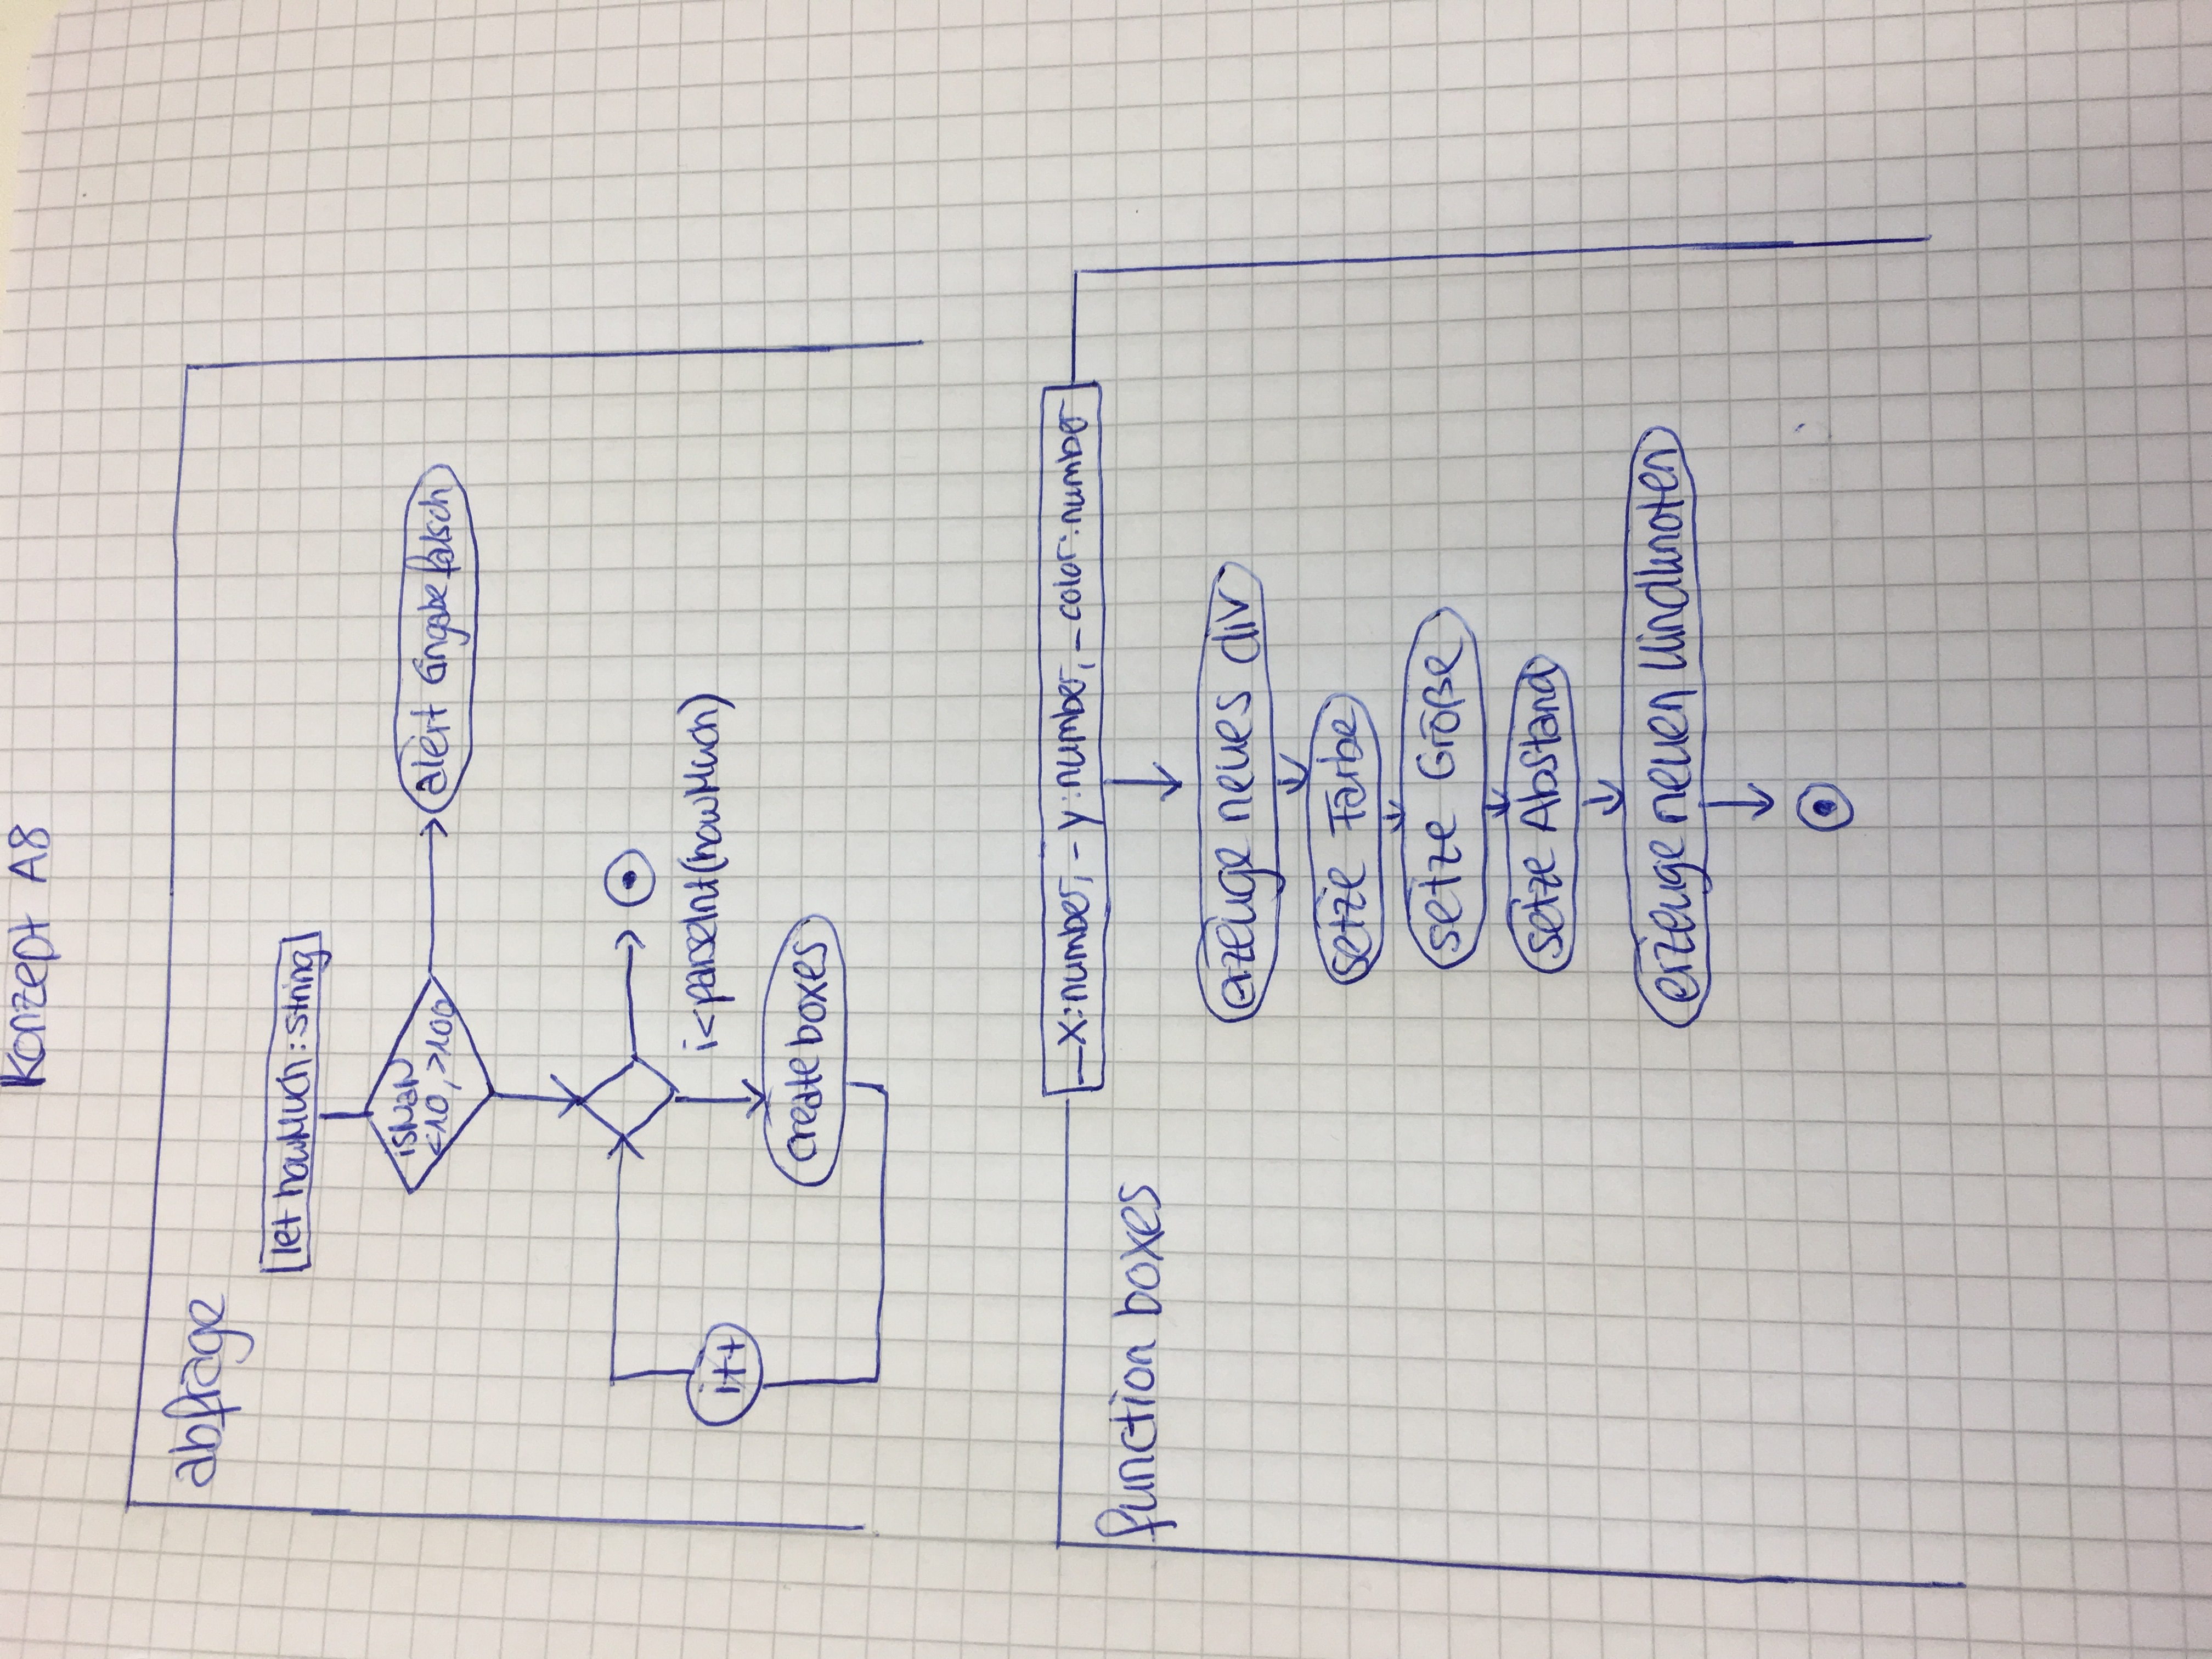 Konzept A8
abfrage
let howMuch: string
isNaN
<10, >100
alert Eingabe falsch
i<parseInt(howMuch)
i++
create boxes
_x:number, _y:number, _color:number
function boxes
erzeuge neues div
setze Farbe
setze Größe
setze Abstand
erzeuge neuen Kindknoten